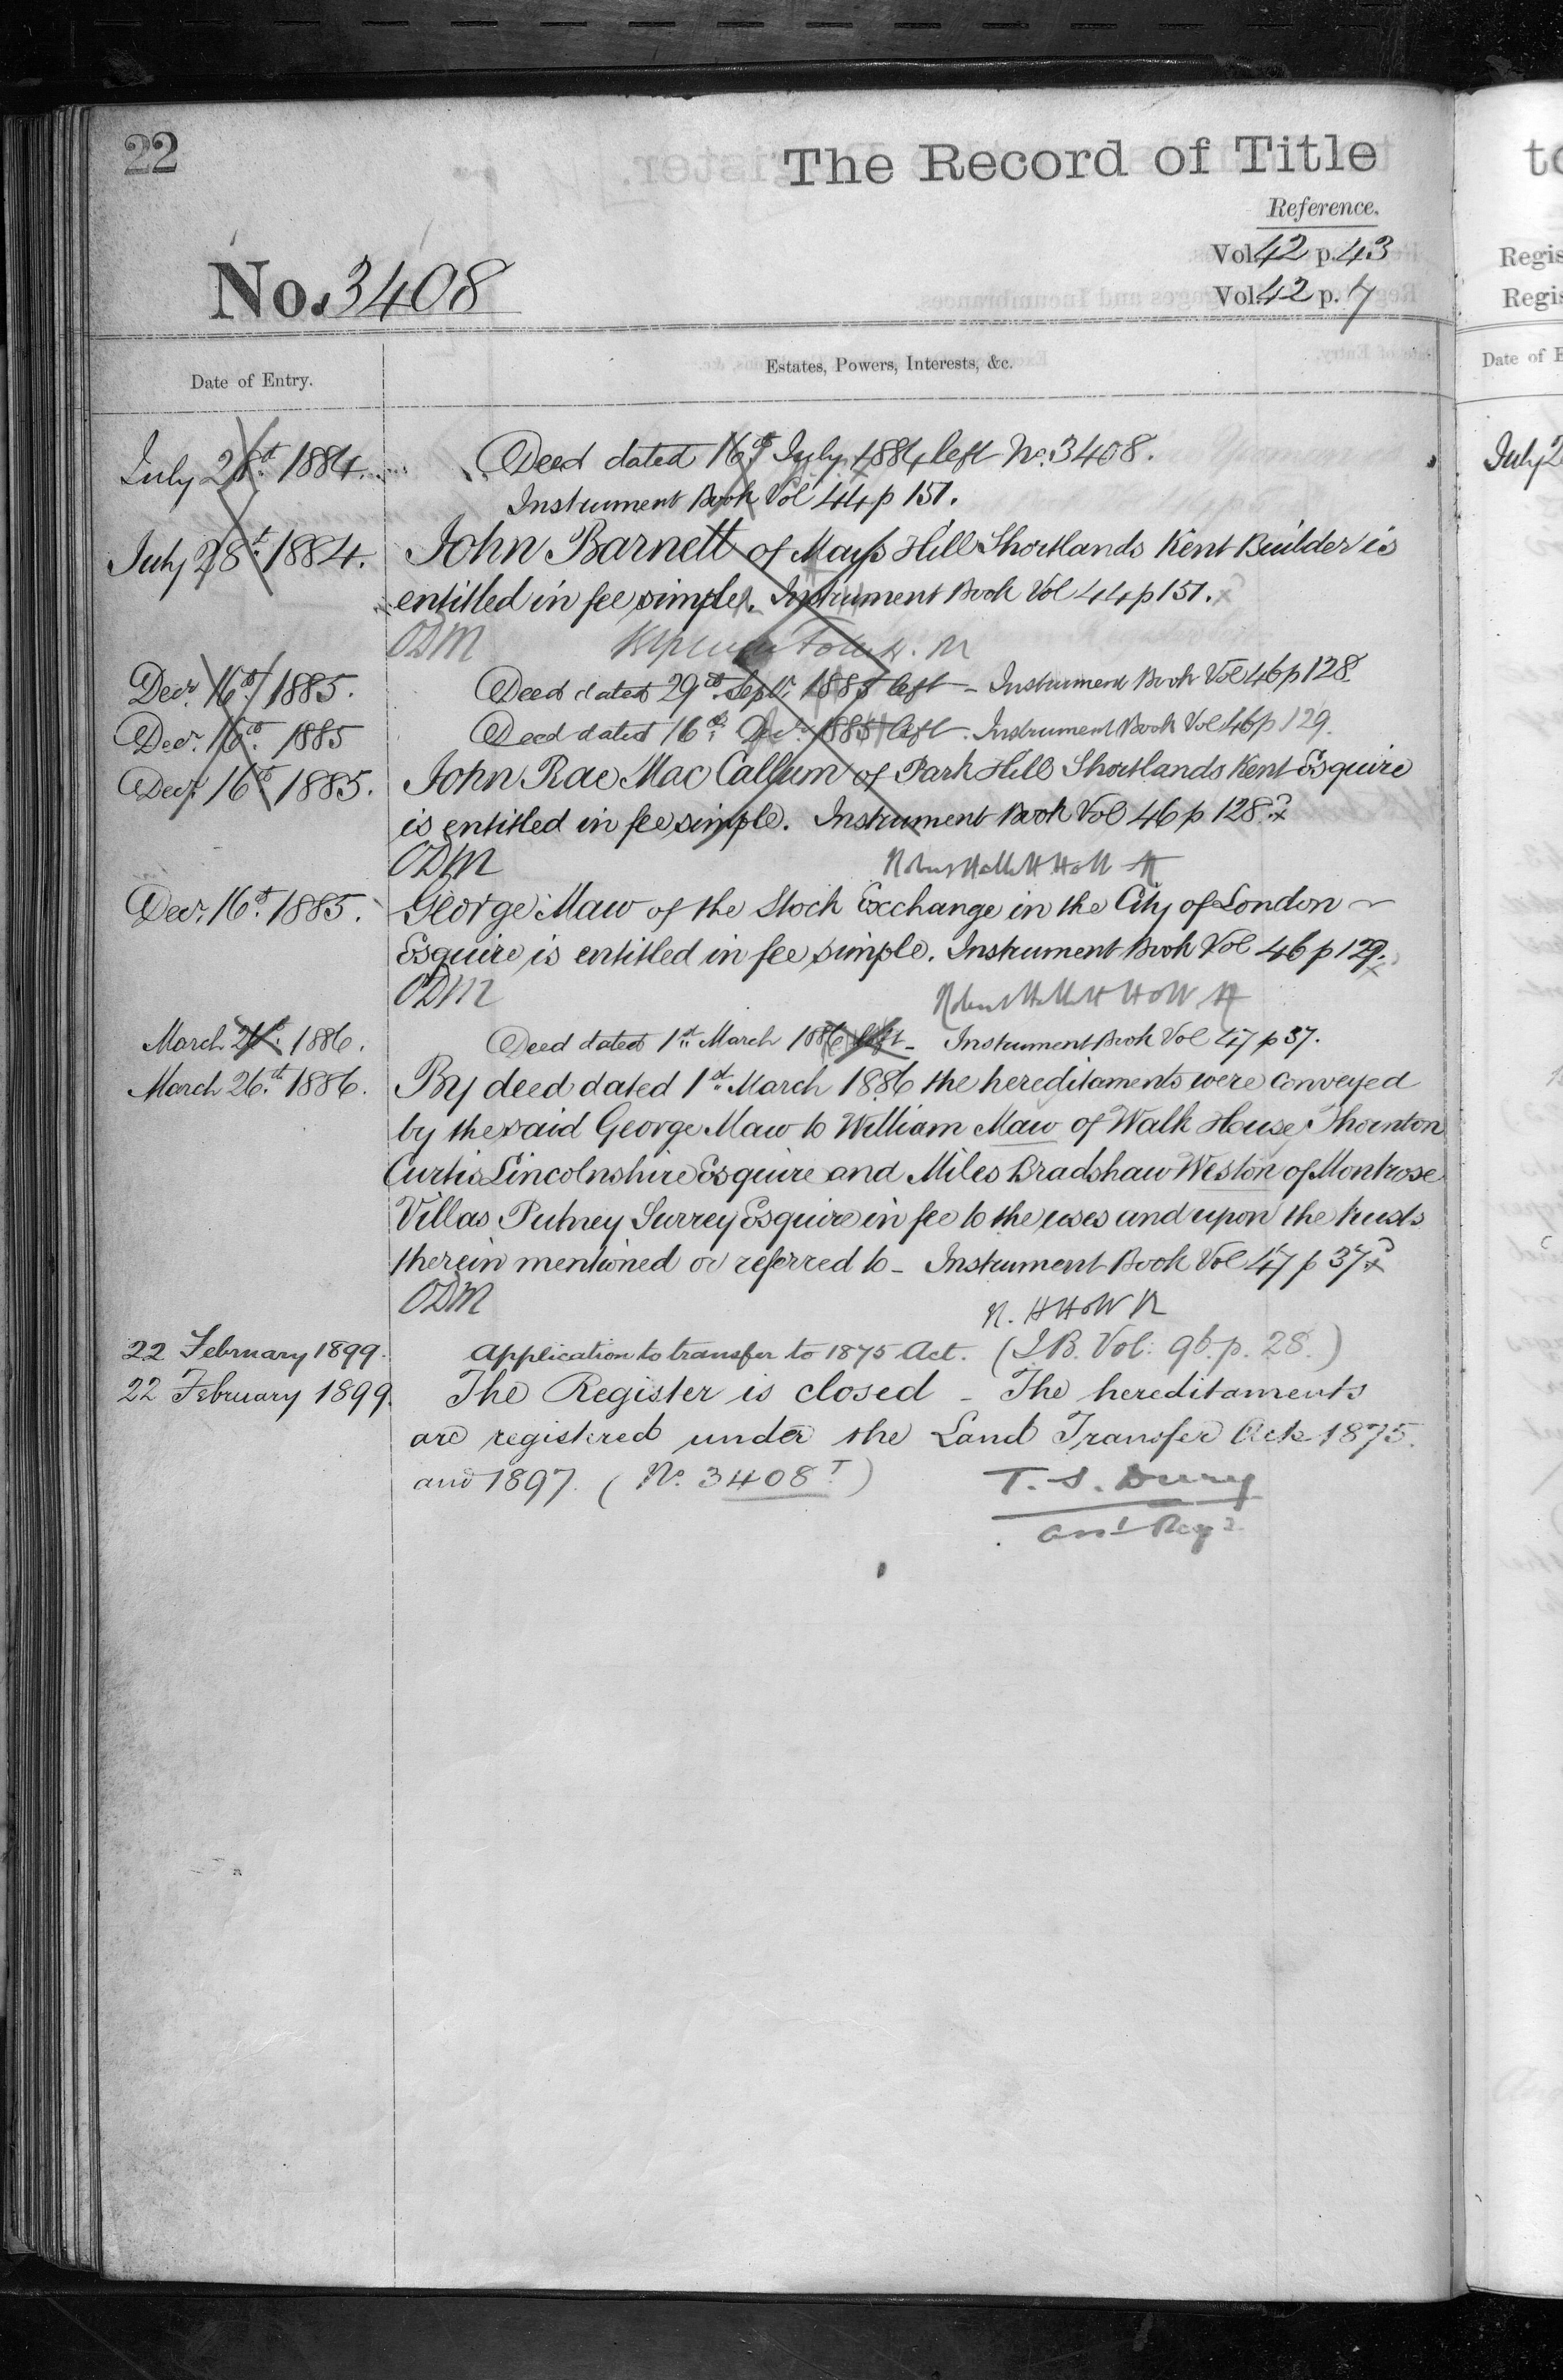 22
The Record of Title
Reference.
Vol. 42 p. 43
Vol. 42 p. 17
No. 3408
Date of Entry.
Estates, Powers, Interests, &c.
July 28th 1884. Deed dated 16th July 1884 left No. 3408.
Instrument Book Vol 44 p 151.
July 28th 1884. John Barnett of Mays Hill Shortlands Kent Builder is
entitled in fee simple. Instrument Book Vol 44 p 151.
ODM
Decr. 16th 1885. Deed dated 29th Septr. 1885 left - Instrument Book Vol 46 p 128.
Decr. 16th 1885 Deed dated 16th Decr. 1885 left. Instrument Book Vol 46 p 129.
Decr. 16th 1885. John Rae Mac Callum of Park Hill Shortlands Kent Esquire
is entitled in fee simple. Instrument Book Vol 46 p 128.
ODM
Decr. 16th 1885. George Maw of the Stock Exchange in the City of London
Esquire is entitled in fee simple. Instrument Book Vol 46 p 129.
ODM
March 1886. Deed dated 1st March 1886 left - Instrument Book Vol 47 p 37.
March 26th 1886. By deed dated 1st March 1886 the hereditaments were conveyed
by the said George Maw to William Maw of Walk House Thornton
Curtis Lincolnshire Esquire and Miles Bradshaw Weston of Montrose
Villas Putney Surrey Esquire in fee to the uses and upon the trusts
therein mentioned or referred to - Instrument Book Vol 47 p 37
ODM
22 February 1899. Application to transfer to 1875 Act. (I.B. Vol: 96. p. 28.)
22 February 1899. The Register is closed - The hereditaments
are registered under the Land Transfer Acts 1875.
and 1897. (No. 3408 T)
T. S. Dury
Asst Regr.
to
Regis
Regis
Date of E
July 2